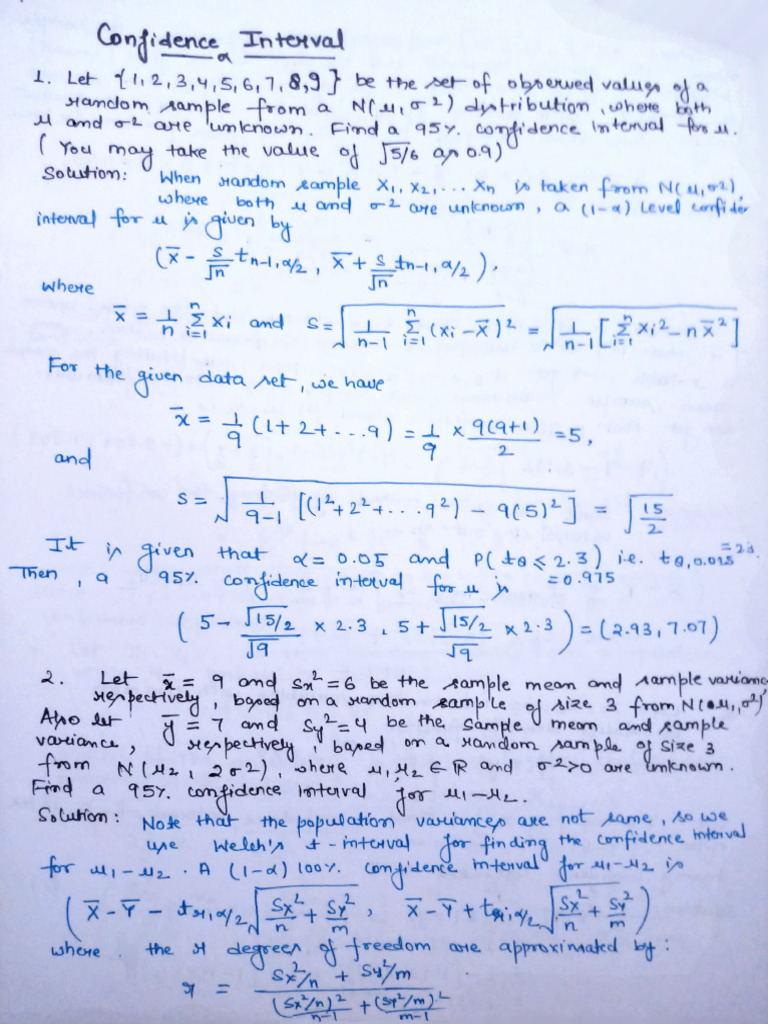 Confidence Interval
1. Let {1,2,3,4,5,6,7,8,9} be the set of observed values of a
random sample from a N(μ,σ²) distribution, where both
μ and σ² are unknown. Find a 95% confidence interval for μ.
(You may take the value of √5/6 as 0.9)
Solution: When random sample X₁, X₂, ... Xn is taken from N(μ,σ²),
where both μ and σ² are unknown, a (1-α) level confider
interval for μ is given by
(x̄ - s/√n tn-1,α/2 , x̄ + s/√n tn-1,α/2),
where
x̄ = 1/n Σⁿᵢ₌₁ xi and s = √(1/(n-1) Σⁿᵢ₌₁ (xi - x̄)²) = √(1/(n-1) [Σⁿᵢ₌₁ xi² - n x̄²])
For the given data set, we have
x̄ = 1/9 (1+2+...9) = 1/9 × 9(9+1)/2 = 5,
and
s = √(1/(9-1) [(1²+2²+...9²) - 9(5)²]) = √(15/2)
It is given that α = 0.05 and P(t8 ≤ 2.3) = 0.975 i.e. t8,0.025
Then, a 95% confidence interval for μ is
(5 - √15/2/√9 × 2.3 , 5 + √15/2/√9 × 2.3) = (2.93, 7.07)
2. Let x̄ = 9 and Sx² = 6 be the sample mean and sample varianc
respectively, based on a random sample of size 3 from N(μ₁,σ²)
Also let ȳ = 7 and Sy² = 4 be the sample mean and sample
variance, respectively, based on a random sample of size 3
from N(μ₂, 2σ²), where μ₁,μ₂ ∈ R and σ²>0 are unknown.
Find a 95% confidence interval for μ₁-μ₂.
Solution: Note that the population variances are not same, so we
use Welch's t-interval for finding the confidence interval
for μ₁-μ₂. A (1-α)100% confidence interval for μ₁-μ₂ is
(X̄ - Ȳ - tr,α/2 √(Sx²/n + Sy²/m), X̄ - Ȳ + tr,α/2 √(Sx²/n + Sy²/m))
where the r degrees of freedom are approximated by:
r = (Sx²/n + Sy²/m) / ((Sx²/n)²/(n-1) + (Sy²/m)²/(m-1))